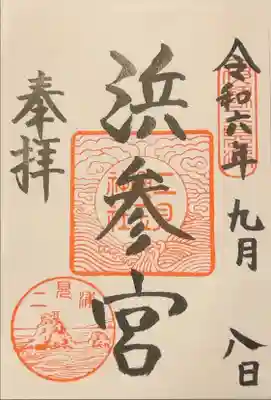 令和六年 九月 八日
浜参宮
奉拝
二見浦